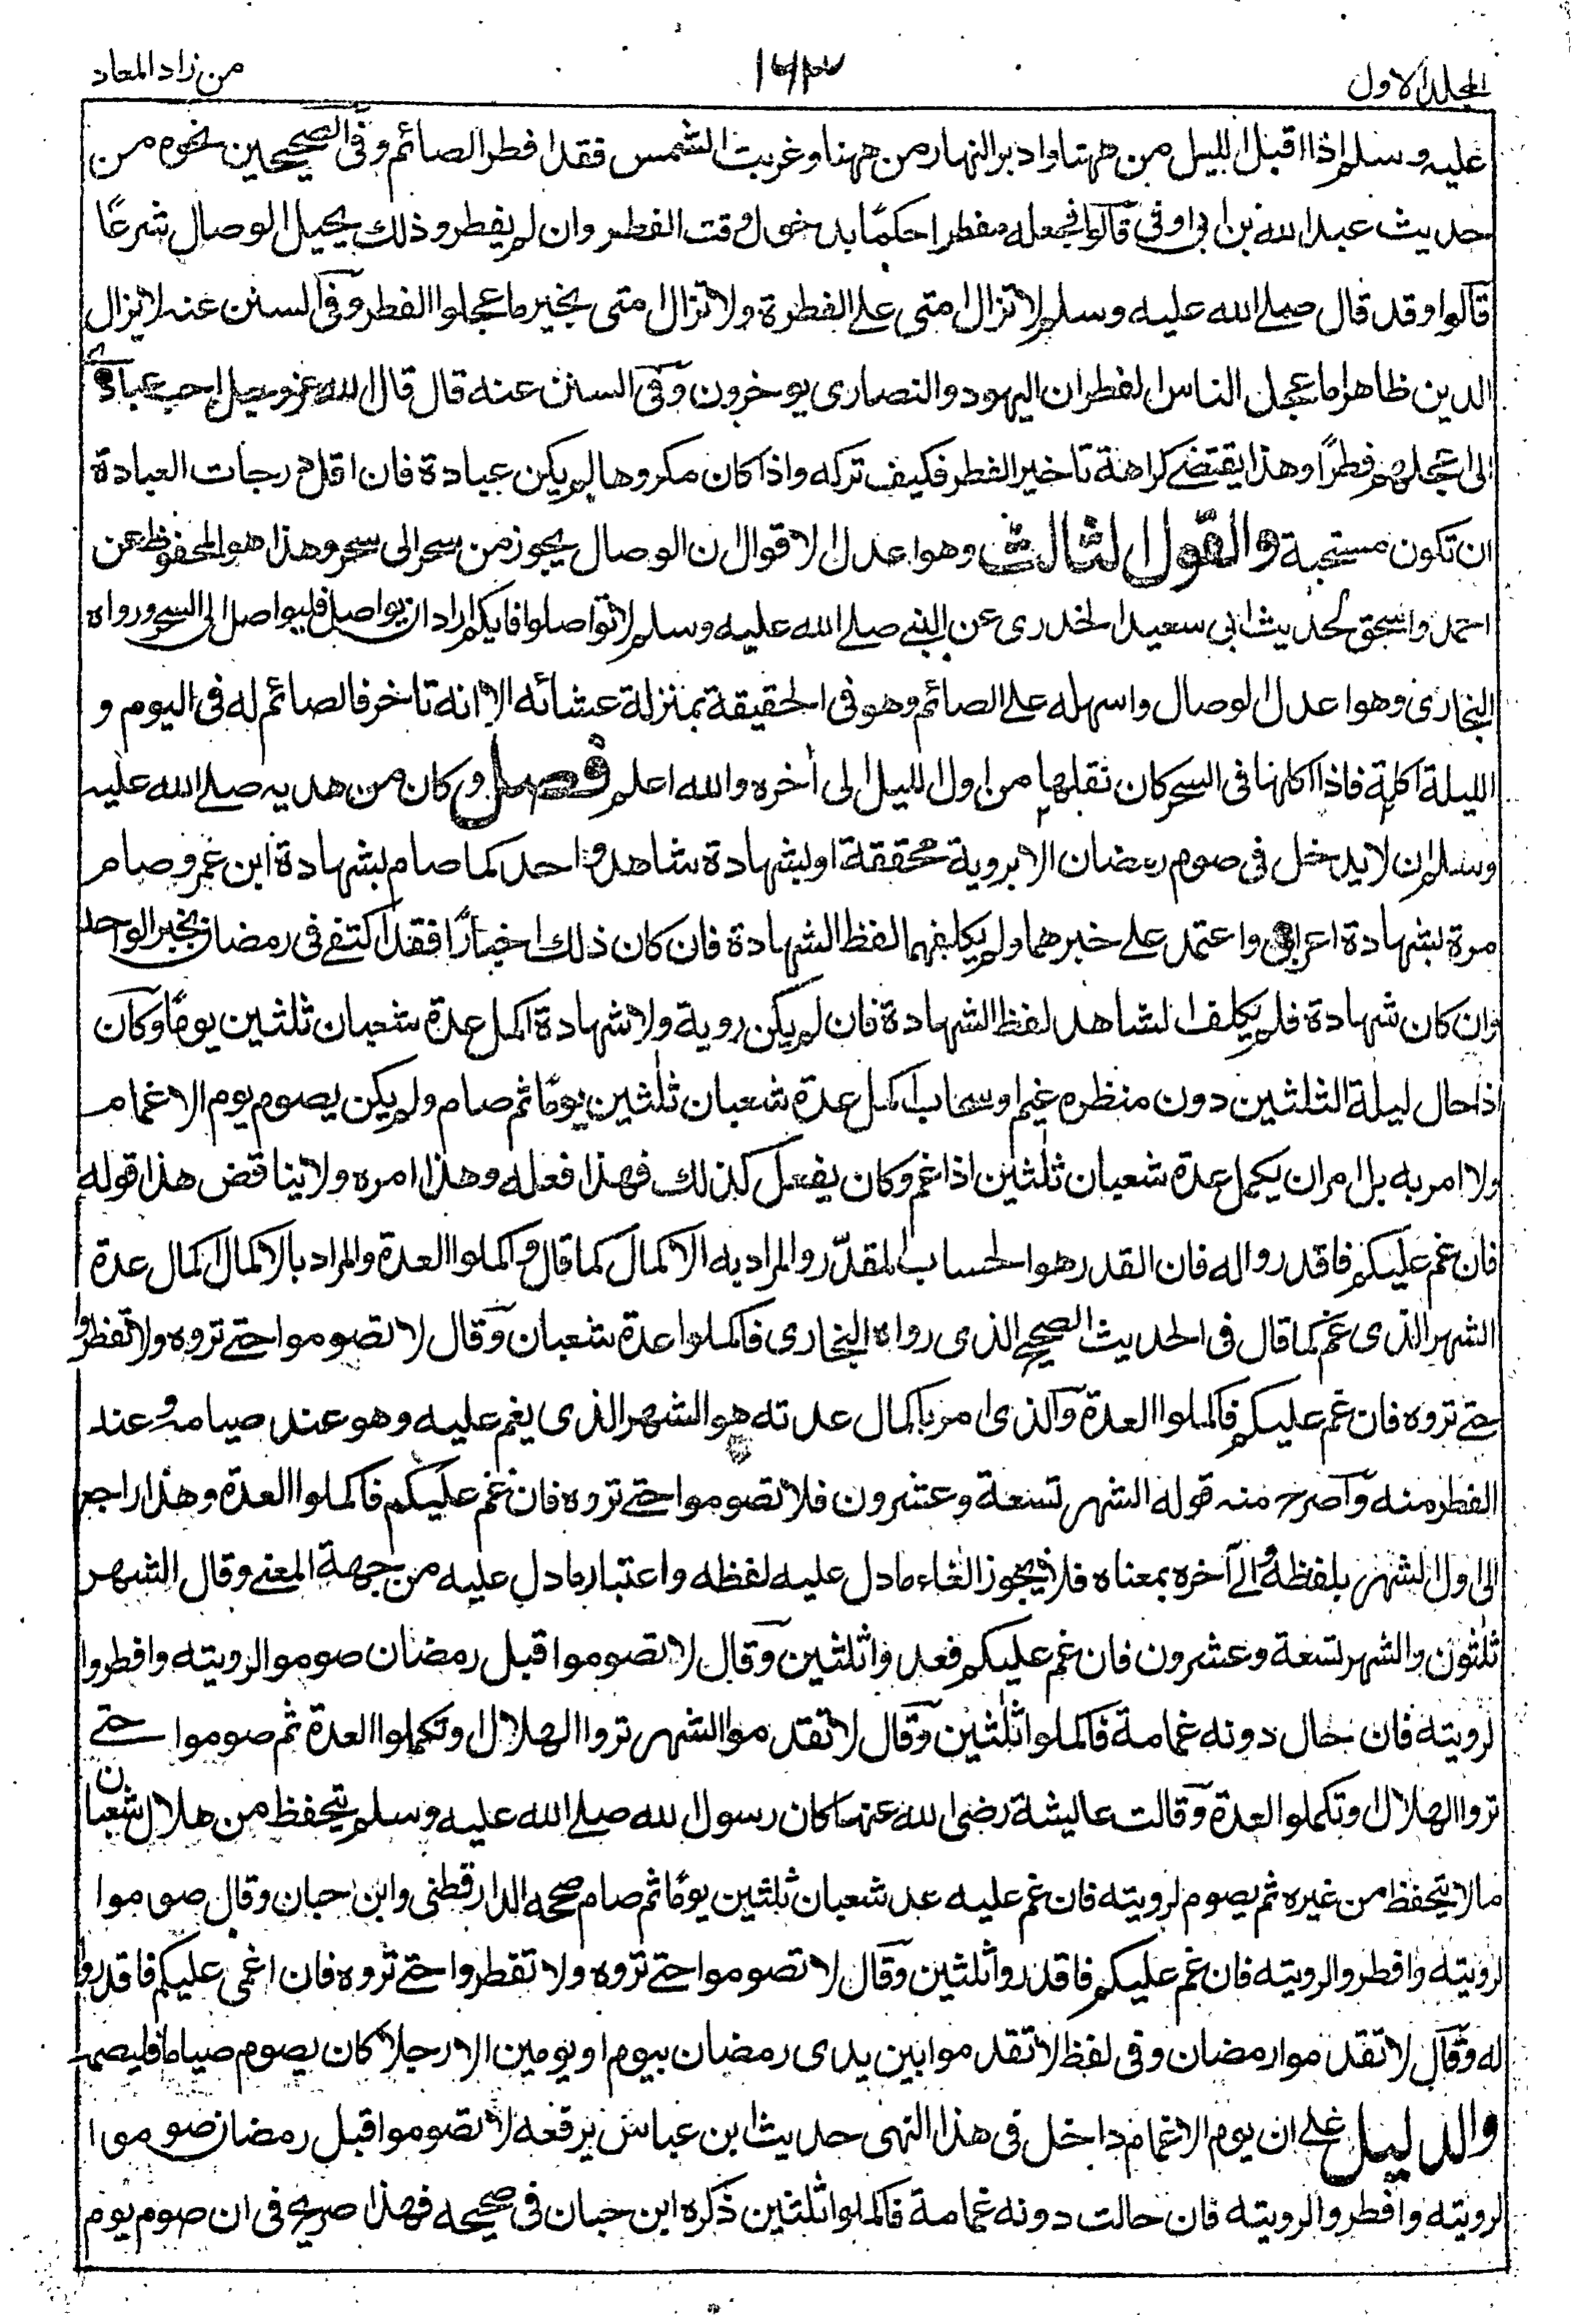 المجلد الاول ١٦٣ من زاد المعاد
عليه وسلم اذا اقبل الليل من ههنا وادبر النهار من ههنا وغربت الشمس فقد افطر الصائم وفى الصحيحين نحوه من
حديث عبد الله بن ابى اوفى قالوا فجعله مفطرا حكمًا بدخول وقت الفطر وان لم يفطر وذلك يحيل الوصال شرعًا
قالوا وقد قال صلى الله عليه وسلم لا تزال امتى على الفطرة ولا تزال امتى بخير ما عجلوا الفطر وفى السنن عنه لا يزال
الدين ظاهرا ما عجل الناس الفطر ان اليهود والنصارى يوخرون وفى السنن عنه قال قال الله عز وجل احب عبادى
الى اعجلهم فطرًا وهذا يقتضى كراهة تاخير الفطر فكيف تركه واذا كان مكروها لم يكن عبادة فان اقل درجات العبادة
ان تكون مستحبة والقول الثالث وهو اعدل الاقوال ان الوصال يجوز من سحر الى سحر وهذا هو المحفوظ عن
احمد واسحق لحديث ابى سعيد الخدرى عن النبى صلى الله عليه وسلم لا تواصلوا فايكم اراد ان يواصل فليواصل الى السحر رواه
البخارى وهو اعدل الوصال واسهله على الصائم وهو فى الحقيقة بمنزلة عشائه الا انه تاخر فالصائم له فى اليوم و
الليلة اكلة فاذا اكلها فى السحر كان نقلها من اول الليل الى أخره والله اعلم فصل وكان من هديه صلى الله عليه
وسلم ان لا يدخل فى صوم رمضان الا بروية محققة او بشهادة شاهد واحد كما صام بشهادة ابن عمر وصام
مرة بشهادة اعرابى واعتمد على خبرهما ولم يكلفهما لفظ الشهادة فان كان ذلك اخبارًا فقد اكتفى فى رمضان بخبر الواحد
وان كان شهادة فلم يكلف الشاهد لفظ الشهادة فان لم يكن روية ولا شهادة اكمل عدة شعبان ثلثين يومًا وكان
اذا حال ليلة الثلثين دون منظره غيم او سحاب اكمل عدة شعبان ثلثين يومًا ثم صام ولم يكن يصوم يوم الاغمام
ولا امر به بل امر ان يكمل عدة شعبان ثلثين اذا غم وكان يفعل كذلك فهذا فعله وهذا امره ولا يناقض هذا قوله
فان غم عليكم فاقدروا له فان القدر هو الحساب المقدّر والمراد به الاكمال كما قال واكملوا العدة والمراد بالاكمال اكمال عدة
الشهر الذى غم كما قال فى الحديث الصحيح الذى رواه البخارى فاكملوا عدة شعبان وقال لا تصوموا حتى تروه ولا تفطروا
حتى تروه فان غم عليكم فاكملوا العدة والذى امر باكمال عدته هو الشهر الذى يغم عليه وهو عند صيامه وعند
الفطر منه واصرح منه قوله الشهر تسعة وعشرون فلا تصوموا حتى تروه فان غم عليكم فاكملوا العدة وهذا راجع
الى اول الشهر بلفظه والى أخره بمعناه فلا يجوز الغاء ما دل عليه لفظه واعتبار ما دل عليه من جهة المعنى وقال الشهر
ثلثون والشهر تسعة وعشرون فان غم عليكم فعدوا ثلثين وقال لا تصوموا قبل رمضان صوموا لرويته وافطروا
لرويته فان حال دونه غمامة فاكملوا ثلثين وقال لا تقدموا الشهر تروا الهلال او تكملوا العدة ثم صوموا حتى
تروا الهلال او تكملوا العدة وقالت عايشة رضى الله عنها كان رسول الله صلى الله عليه وسلم يتحفظ من هلال شعبان
ما لا يتحفظ من غيره ثم يصوم لرويته فان غم عليه عد شعبان ثلثين يومًا ثم صام صححه الدارقطنى وابن حبان وقال صوموا
لرويته وافطروا لرويته فان غم عليكم فاقدروا ثلثين وقال لا تصوموا حتى تروه ولا تفطروا حتى تروه فان اغمى عليكم فاقدروا
له وقال لا تقدموا رمضان وفى لفظ لا تقدموا بين يدى رمضان بيوم او يومين الا رجلا كان يصوم صياما فليصمه
والدليل على ان يوم الاغمام داخل فى هذا النهى حديث ابن عباس يرفعه لا تصوموا قبل رمضان صوموا
لرويته وافطروا لرويته فان حالت دونه غمامة فاكملوا ثلثين ذكره ابن حبان فى صحيحه فهذا صريح فى ان صوم يوم